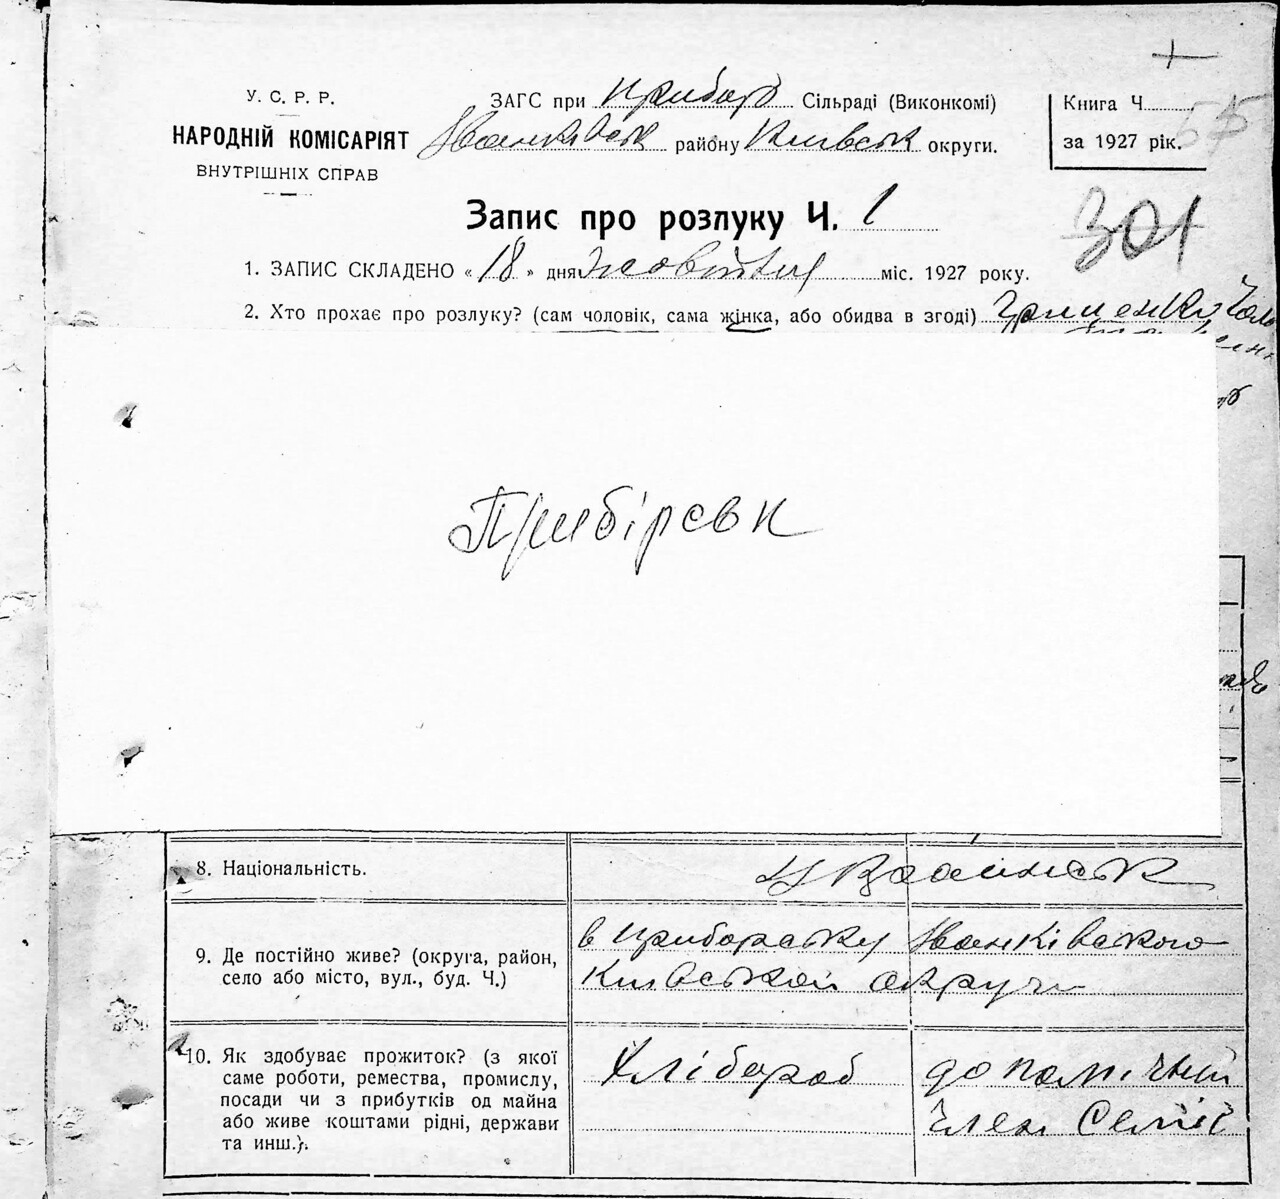 У. С. Р. Р.
НАРОДНІЙ КОМІСАРІЯТ
ВНУТРІШНІХ СПРАВ
ЗАГС при Прибор Сільраді (Виконкомі)
Іванківськ району Київськ округи.
Книга Ч.
за 1927 рік.
301
Запис про розлуку Ч. 1
1. ЗАПИС СКЛАДЕНО « 18 » дня жовтня міс. 1927 року.
2. Хто прохає про розлуку? (сам чоловік, сама жінка, або обидва в згоді)
Прибірськ
8. Національність.
Українськ
9. Де постійно живе? (округа, район,
село або місто, вул., буд. Ч.)
в Приборську Іванківского
Київськой округи
10. Як здобуває прожиток? (з якої
саме роботи, ремества, промислу,
посади чи з прибутків од майна
або живе коштами рідні, держави
та инш.).
Хлібороб
допомічний
член Семії